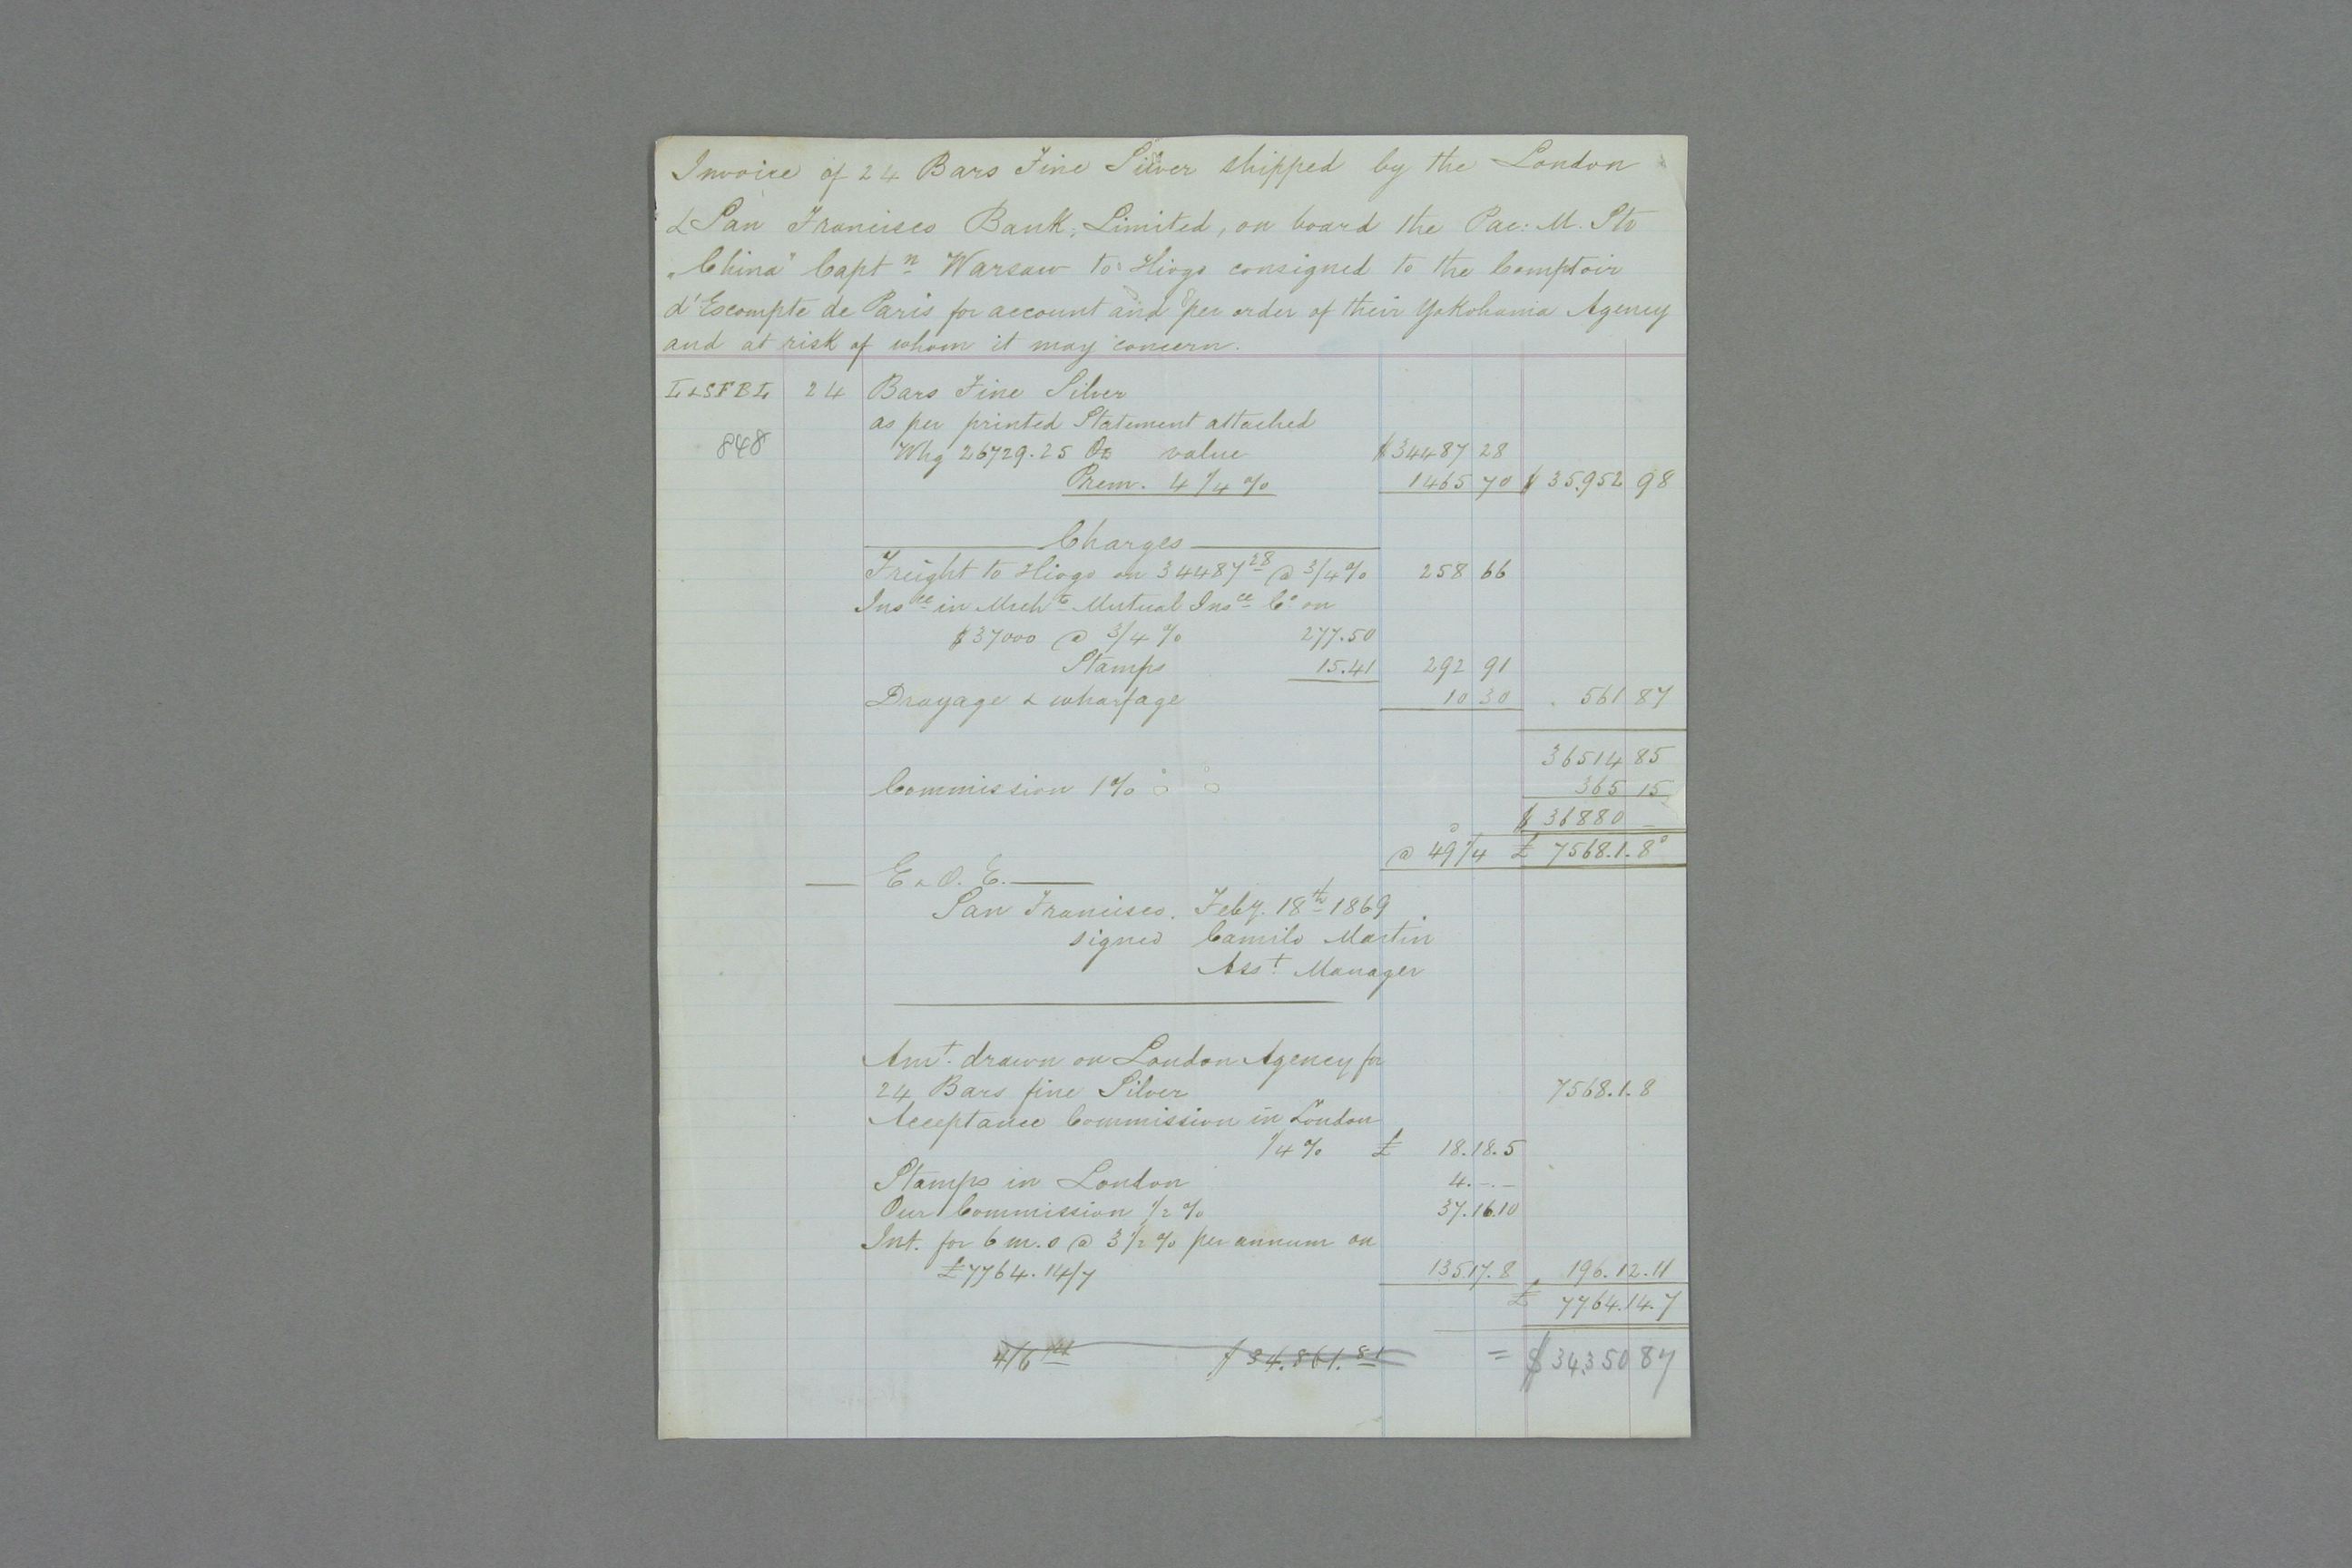 Invoice of 24 Bars Fine Silver shipped by the London
& San Francisco Bank, Limited, on board the Pac: M. Str
"China" Captn Warsaw to Hiogo consigned to the Comptoir
d'Escompte de Paris for account and per order of their Yokohama Agency
and at risk of whom it may concern.
L&SFBL 24 Bars Fine Silver
as per printed Statement attached
848 Whg 26729.25 Oz value $34487 28
Prem. 4 1/4 % 1465 70 $ 35.952 98
Charges
Freight to Hiogo on 34487 28 @ 3/4 % 258 66
Insce in Mcht Mutual Insce Co on
$37000 @ 3/4 % 277.50
Stamps 15.41 292 91
Drayage & wharfage 10 30 561 87
36514 85
Commission 1% 365 15
$ 36880 –
@ 49 1/4 £ 7568.1.8
E & O. E.
San Francisco. Feby. 18th 1869
signed Camilo Martin
Asst. Manager
Amt. drawn on London Agency for
24 Bars fine Silver 7568.1.8
Acceptance Commission in London
1/4 % £ 18.18.5
Stamps in London 4.-.-
Our Commission 1/2 % 37.16.10
Int. for 6 m.s @ 3 1/2 % per annum on
£7764.14/7 135.17.8 196.12.11
£ 7764.14.7
4/6 $ 34.861.81 = $ 34.350 87